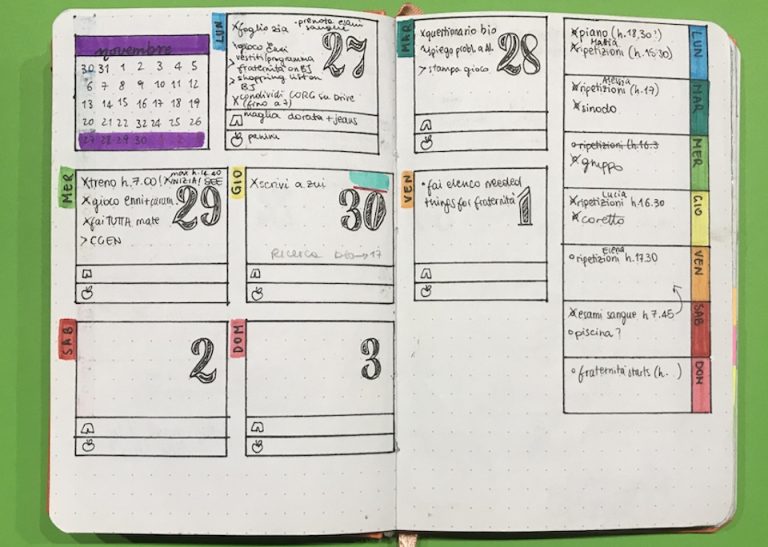 novembre
30 31 1 2 3 4 5
6 7 8 9 10 11 12
13 14 15 16 17 18 19
20 21 22 23 24 25 26
27 28 29 30 1 2 3
LUN
27
xfoglio zia
•prenota esami
sangue
gioco
vestiti/programma
>fraternità on BJ
>shopping list on
BJ
xcondividi CORG su Drive
(fino a 7)
maglia dorata + jeans
panini
MER
29
xtreno h.7.00!
max h.14.40
xINIZIA! SEE
xgioco enni+param
xfai TUTTA mate
>CGEN
GIO
30
xscrivi a zui
Ricerca 17
SAB
2
DOM
3
MAR
28
xquestionario bio
spiego probl. a Al.
>stampa gioco
VEN
1
•fai elenco needed
things for fraternità
LUN
xpiano (h.18,30!)
Mattia
xripetizioni (h.15:30)
MAR
Alessia
xripetizioni (h.17)
xsinodo
MER
oripetizioni (h.16.3
xgruppo
GIO
Lucia
xripetizioni h.16.30
xcoretto
VEN
Elena
oripetizioni h.17.30
SAB
xesami sangue h 7.45
opiscina?
DOM
ofraternità starts (h. )